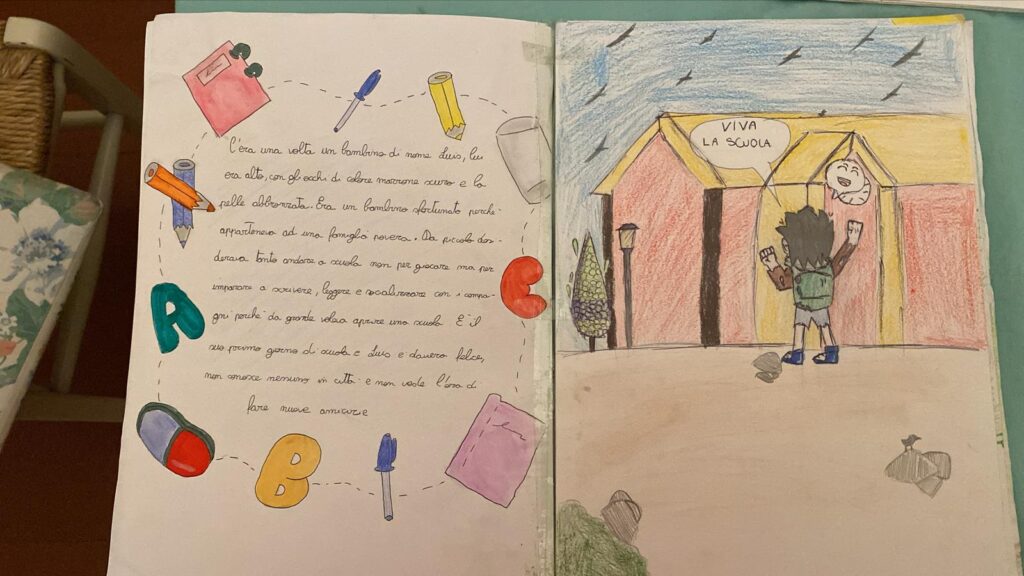 C'era una volta un bambino di nome Luis, lui
era alto, con gli occhi di colore marrone scuro e la
pelle abbronzata. Era un bambino sfortunato perchè
apparteneva ad una famiglia povera. Da piccolo desi-
derava tanto andare a scuola non per giocare ma per
imparare a scrivere, leggere e socializzare con i compa-
gni perchè da grande voleva aprire una scuola. È il
suo primo giorno di scuola e Luis è davvero felice,
non conosce nessuno in città e non vede l'ora di
fare nuove amicizie
A
B
C
VIVA
LA SCUOLA